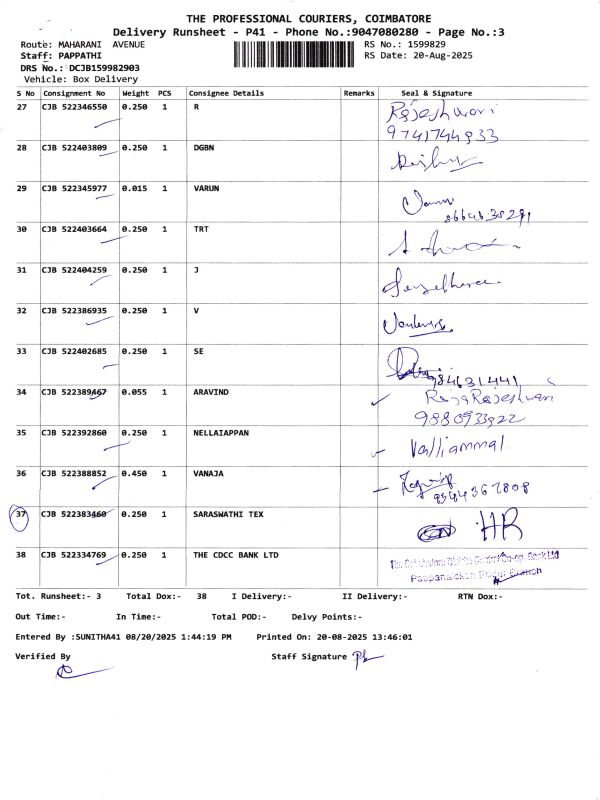 THE PROFESSIONAL COURIERS, COIMBATORE
Delivery Runsheet - P41 - Phone No.:9047080280 - Page No.:3
Route: MAHARANI AVENUE RS No.: 1599829
Staff: PAPPATHI RS Date: 20-Aug-2025
DRS No.: DCJB159982903
Vehicle: Box Delivery
S No Consignment No Weight PCS Consignee Details Remarks Seal & Signature
27 CJB 522346550 0.250 1 R Rajeshwari
9741744933
28 CJB 522403809 0.250 1 DGBN
29 CJB 522345977 0.015 1 VARUN
30 CJB 522403664 0.250 1 TRT
31 CJB 522404259 0.250 1 J
32 CJB 522386935 0.250 1 V
33 CJB 522402685 0.250 1 SE
984631441
34 CJB 522389467 0.055 1 ARAVIND RajaRajeshwari
9880933922
35 CJB 522392860 0.250 1 NELLAIAPPAN Valliammal.
36 CJB 522388852 0.450 1 VANAJA
9344367808
37 CJB 522383460 0.250 1 SARASWATHI TEX HR
38 CJB 522334769 0.250 1 THE CDCC BANK LTD
Tot. Runsheet:- 3 Total Dox:- 38 I Delivery:- II Delivery:- RTN Dox:-
Out Time:- In Time:- Total POD:- Delvy Points:-
Entered By :SUNITHA41 08/20/2025 1:44:19 PM Printed On: 20-08-2025 13:46:01
Verified By Staff Signature